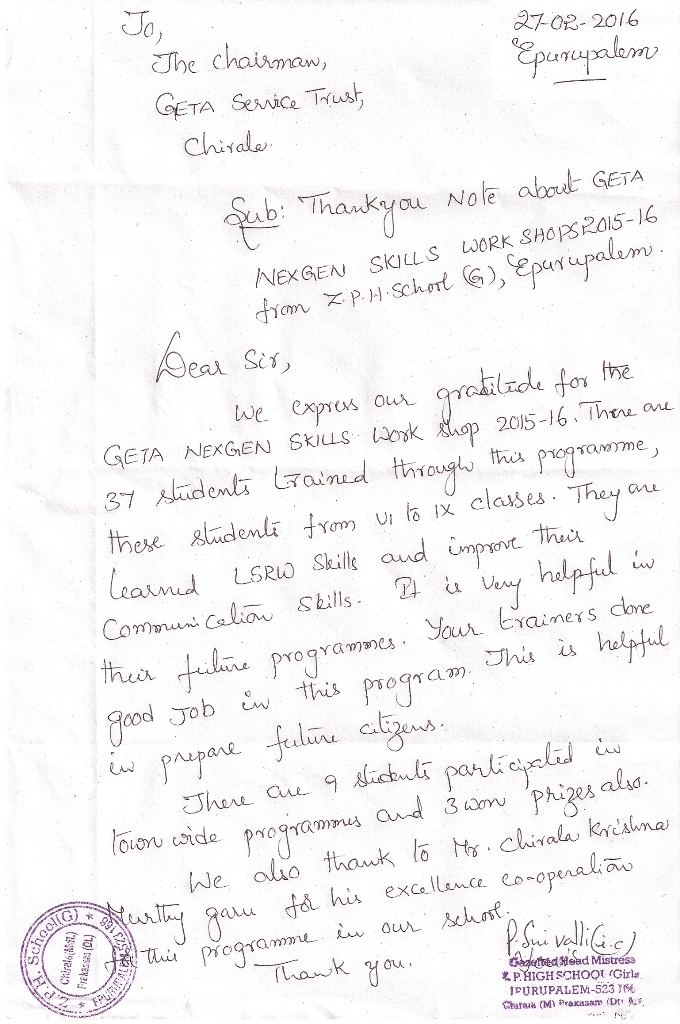 27-02-2016
Epurupalem
To,
The Chairman,
GETA Service Trust,
Chirala.
Sub: Thankyou Note about GETA
NEXGEN SKILLS WORK SHOPS 2015-16
from Z.P.H. School (G), Epurupalem.
Dear Sir,
We express our gratitude for the
GETA NEXGEN SKILLS Work shop 2015-16. There are
37 students trained through this programme,
these students from VI to IX classes. They are
learned LSRW Skills and improve their
Communication Skills. It is very helpful in
their future programmes. Your trainers done
good Job in this program. This is helpful
in prepare future citizens.
There are 9 students participated in
town wide programmes and 3 won prizes also.
We also thank to Mr. Chirala Krishna
Murthy garu for his excellence co-operation
for this programme in our school.
Thank you.
P. Sri Valli (i.c)
Gazetted Head Mistress
Z.P.HIGH SCHOOL (Girls)
IPURUPALEM-523
Chirala (M) Prakasam (Dt)
Z.P.H. School (G) * IPURUPALEM
Chirala (Md.)
Prakasam (Dt.)